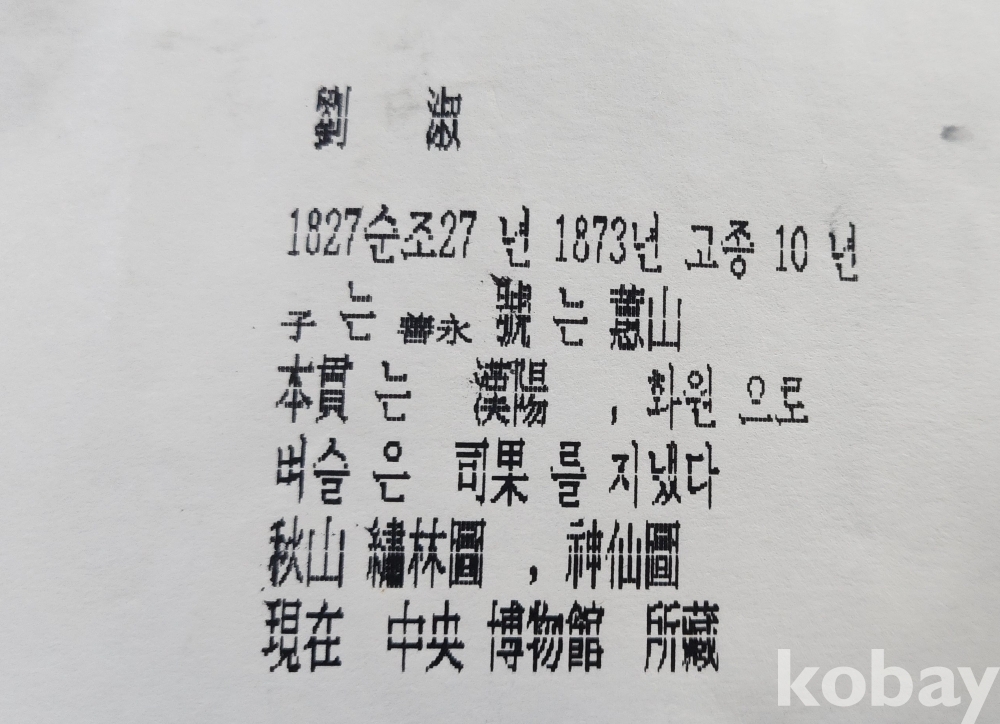 劉 淑
1827순조27 년 1873년 고종 10 년
子 는 善永 號 는 蕙山
本貫 는 漢陽 , 화원 으로
벼슬 은 司果 를 지냈다
秋山 繡林圖 , 神仙圖
現在 中央 博物館 所藏
kobay